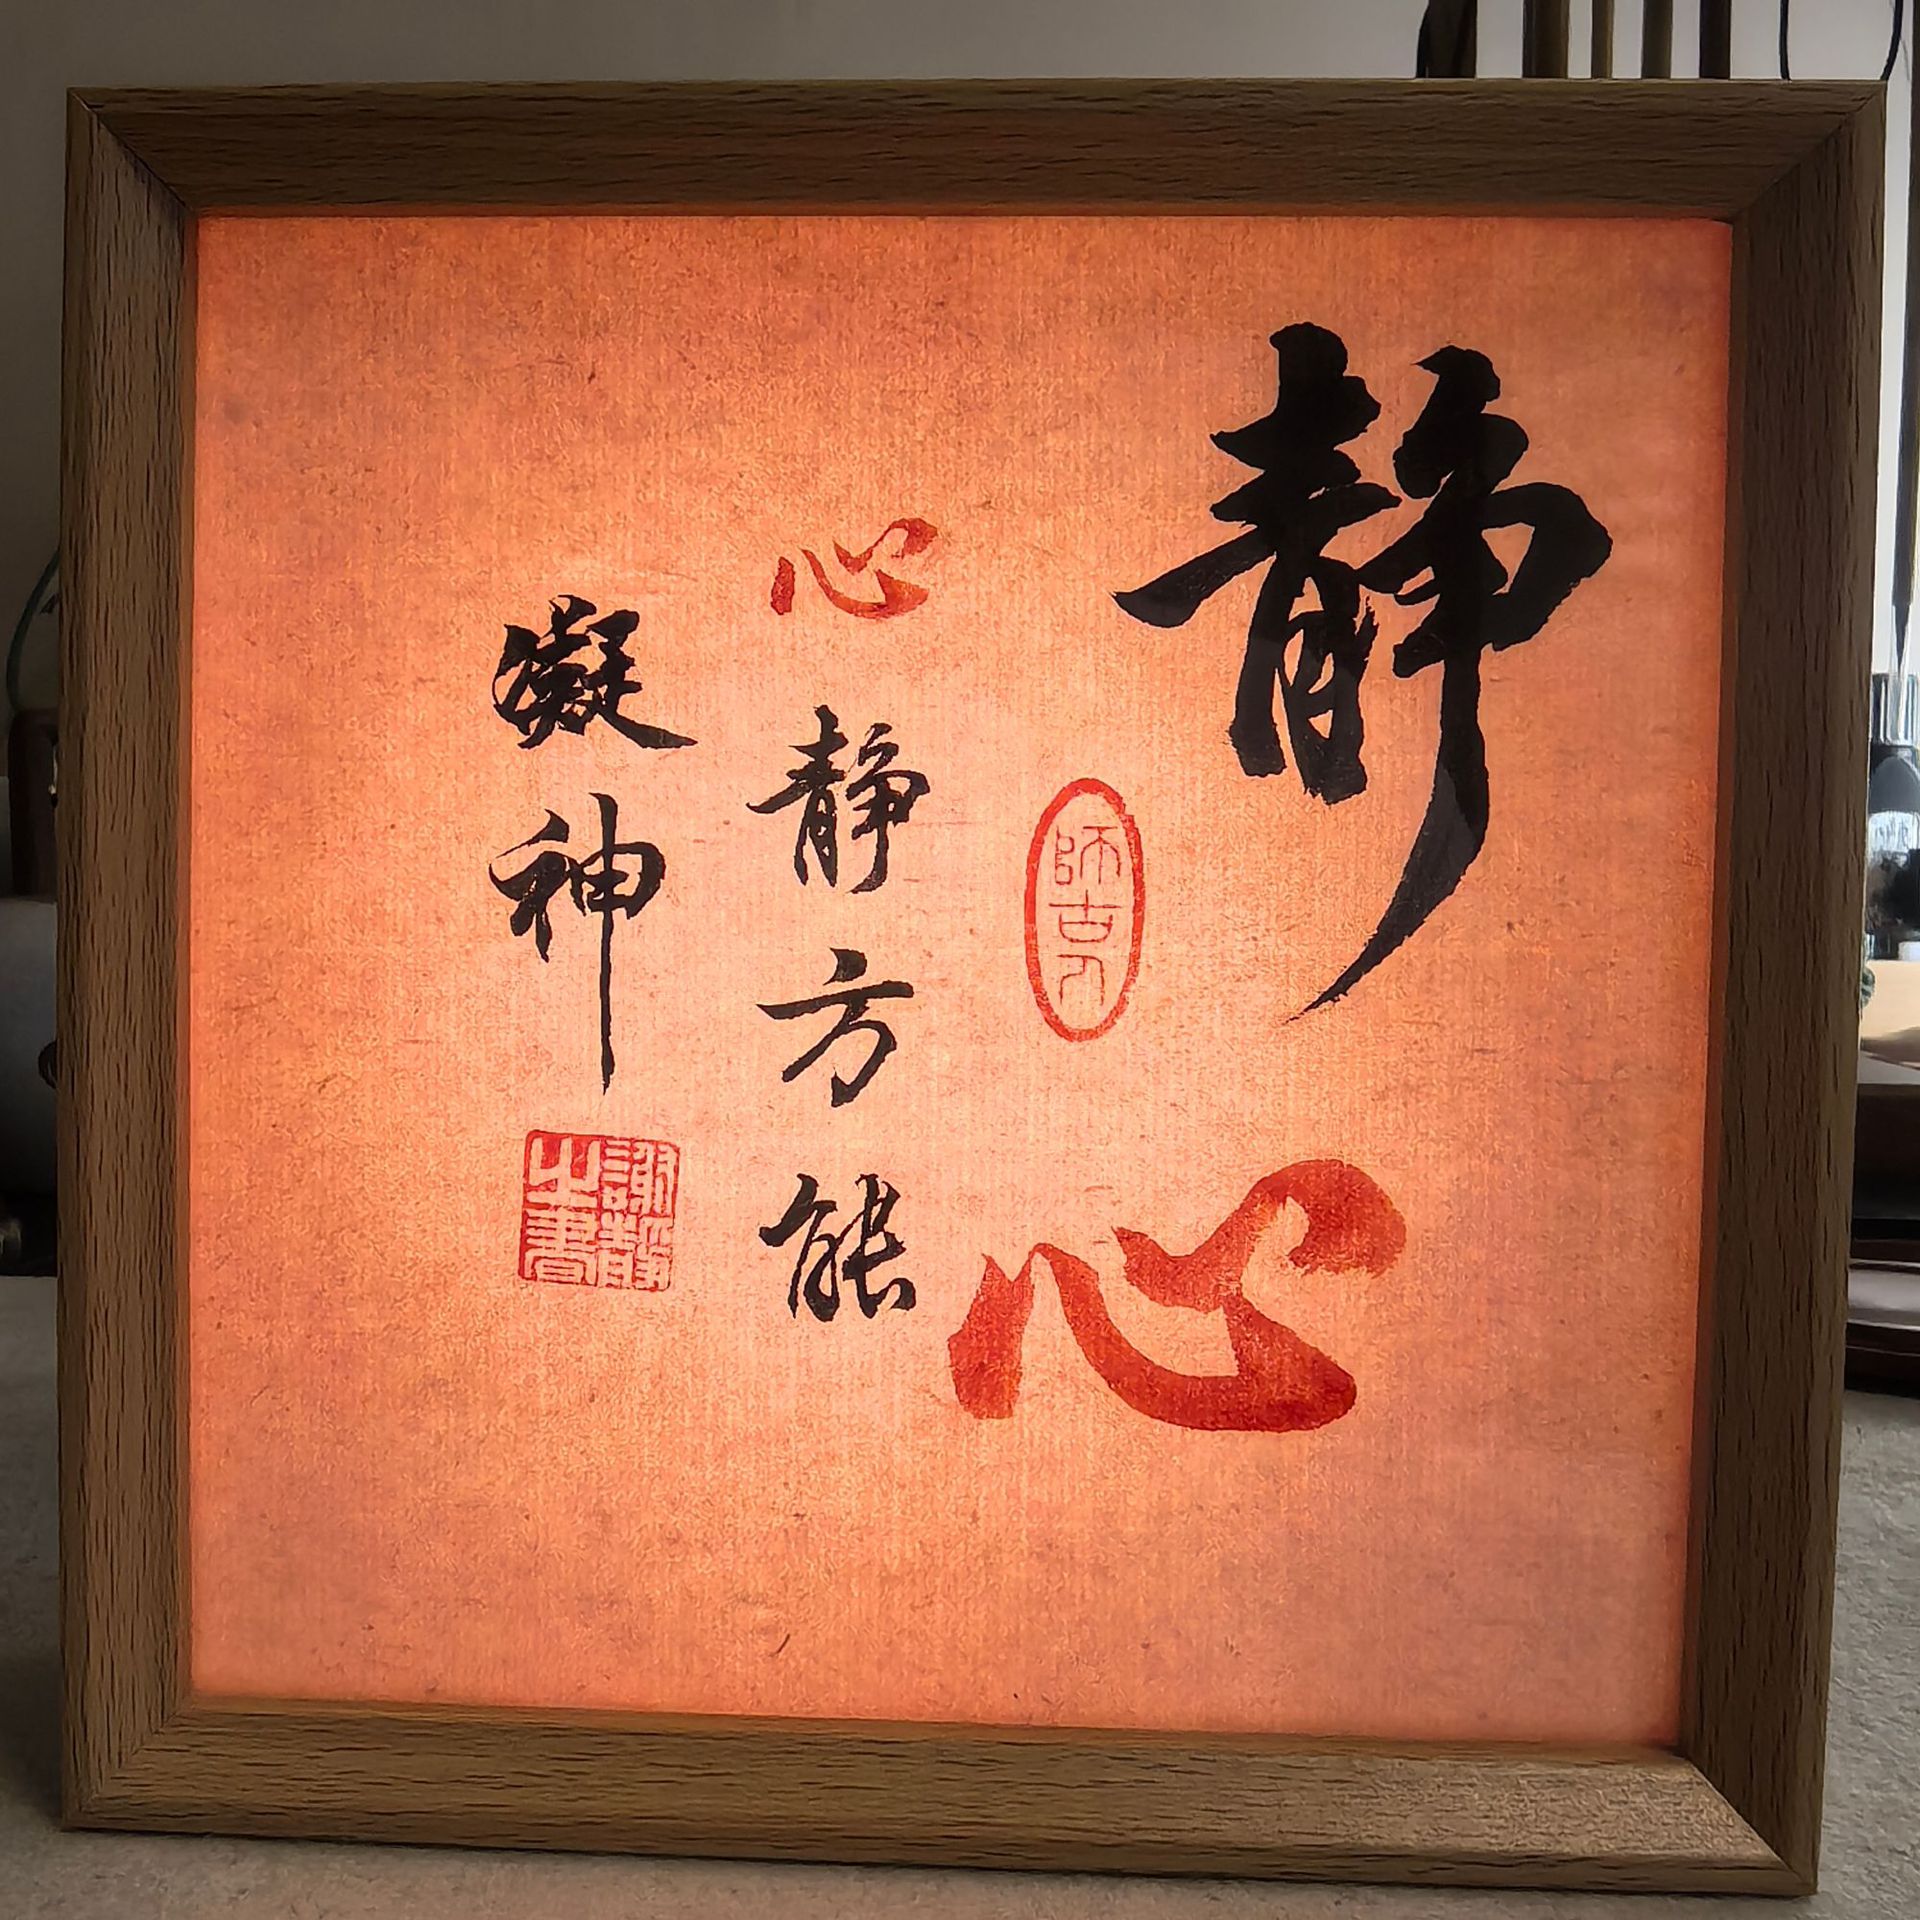 静心
师古人
心静方能
凝神
谢静之书